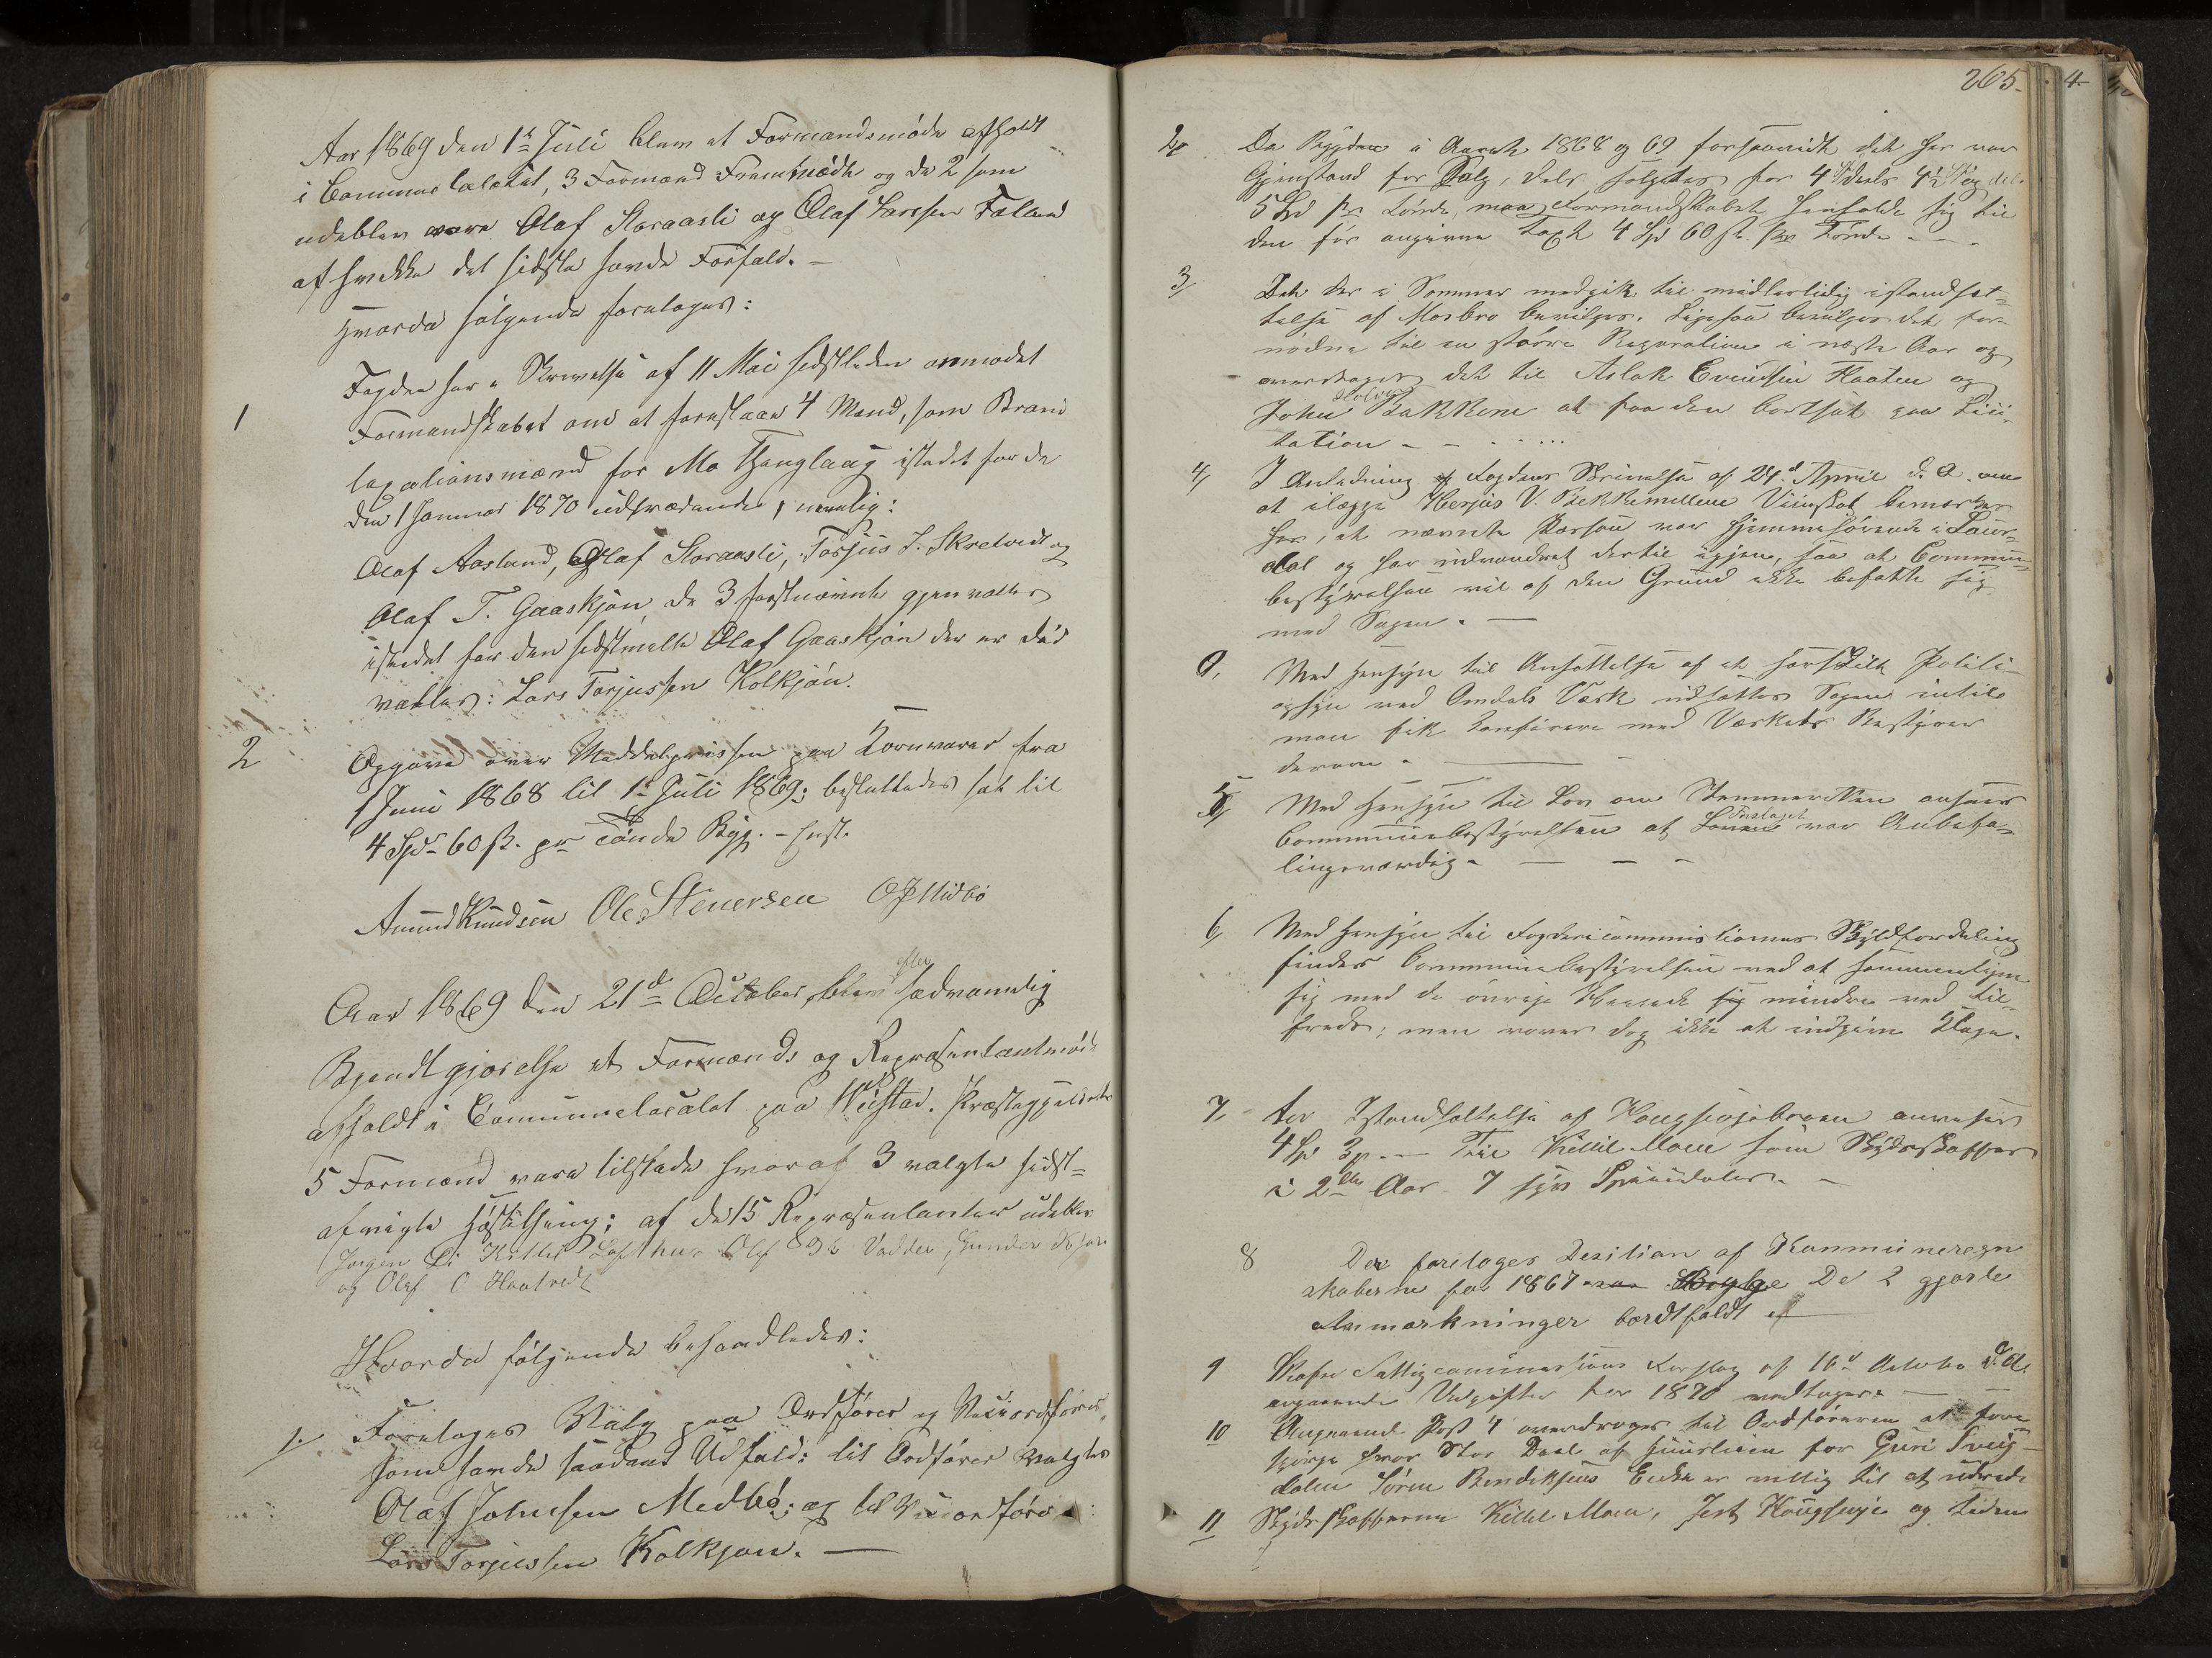 Aar 1869 den 1ste Juli blev et Formandsmøde afholdt
i Communelocalet, 3 Formænd Fremmødte og de 2 som
udeblev vare Olaf Storaasli og Olaf Larssen
af hvilke det sidste havde Forfald. –
Hvorda følgende foretoges:
1 Fogden har i Skrivelse af 11 Mai sidstleden anmodet
Formandskabet om at foreslaae 4 Mænd, som Brand
taxationsmænd for Mo Thinglaug istedet for de
den 1 Januar 1870 udtrædende, nemlig:
Olaf Aasland, Olaf Storaasli, Torjus J. Skretvedt og
Olaf T. Gaaskjøn, de 3 førstnævnte gjenvalttes
istedet for den sidstmeldte Olaf Gaaskjøn der er død
valttes: Lars Torjussen Kolkjøn.
2 Opgave over Middelprissen paa Kornvarer fra
1 Juni 1868 til 1ste Juli 1869; besluttedes sat til
4 Spd 60 ß. pr Tønde Byg. – Hvst.
Amund Knudsen Ole Stenersen O J Midbö
Aar 1869 den 21de October, blev efter sædvanelig
Bjendtgjørelse et Formænds og Repræsentantmøde
afholdt i Communelocalet paa Præstegjeldets
5 Formænd vare tilstæde hvoraf 3 valgte sidst-
afvigte af de 15 Repræsentanter udeblev
Jørgen Kittil Lofthus Olaf Vadder, Gunder
og Olaf O Haatvedt
Hvorda følgende behandledes:
1. Foretoges Valg paa Ordfører og Viceordfører
som havde saadant Udfald: til Ordfører valgtes
Olaf Johnsen Medbö; og til Viceordfører:
Lars Torjussen Kolkjøn. —
265.
2, Da Bygden i Aaret 1868 og 69 forsaavidt det har vær
Gjenstand for Salg, dels solgtes for 4 Spd dels 4½ Spd og dels
5 Spd pr Tønde, maa Formandskabet henholde sig til
den før angivne Taxt 4 Spd 60 ß. pr Tønde – –
3, Det der i Sommer medgik til midlertidig istandsæt-
telse af Mosbro bevilges. Ligesaa bevilges det for-
nødne til en større Reparation i næste Aar og
overdroges det til Aslak Evindsen Flaaten og
John Bakkene at faa den bortsat paa Lici-
tation – – . . ...
4, I Anledning af Fogdens Skrivelse af 24d April d. A. om
at ilægge Herjus V. Bekkemellem bemærkes
her, at nævnte Person var hjemmehørende i Laur-
dal og har udvandret dertil igjen, saa at Commun
bestyrelsen vil af den Grund ikke befatte sig
med Sagen. —
Med Hensyn til Ansættelse af et særskilt Politi-
opsyn ved Omdals Værk udsættes Sagen indtil
man fik konferere med Værkets Bestyrer
derom. —
5, Med Hensyn til Lov om ansees
Communebestyrelsen at Forslaget var Anbefa-
lingsværdig. — — –
6, Med Hensyn til Fogdericommissionens Skyldfordeling
finder Communebestyrelsen ved at sammenligne
sig med de øvrige Herreder sig mindre vel til-
freds; men vover dog ikke at indgive Klage.
7, For Istandsættelse af Haugsevjebroen anvises
4 Spd 3 ß. — Til Kittil Moen som Skydsskaffer
i 2de Aar 7 syv Speciedaler. –
8 Der foretoges Desition af Kommuneregn
skaberne for 1867 De 2 gjorte
Anmærkninger bordtfaldt
9 Mofjeld Fattigcommissions Forslag af 16d October d. A.
angaaende Udgifter for 1870 vedtoges. — —
10 Angaaende Post 4 overdroges til Ordføreren at fore
spørge hvor Stor Deel af Huusleien for Guri Sveig
dalen Søren Bendiksens Enke er villig til at udrede
11 Skydsskafferne Kittil Moen, Jest Haugsevje og